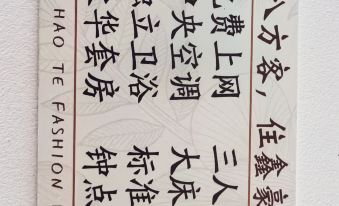 八方客，住鑫豪
免费上网 三人
中央空调 大床
独立卫浴 标准
豪华套房 钟点
HAO TE FASHION